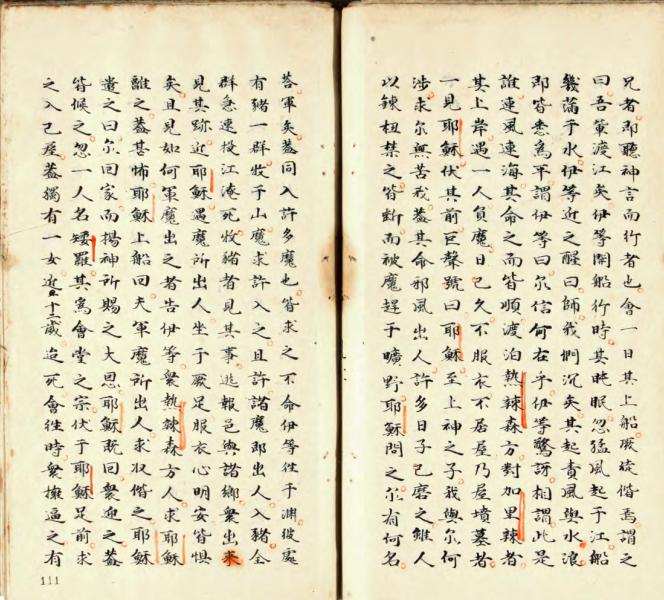 兄者即聽神言而行者也會一日其上船厥徒偕焉謂之
曰吾輩渡江矣伊等開船行時其眈眠忽猛風起于江船
幾蒲于水伊等近之醒曰師我們沉矣其起責風與水浪
即皆悉為平謂伊等曰尔信何在乎伊等驚訝相謂此是
誰連風連海其命之而皆順渡泊熱辣森方對加里辣者
其上岸遇一人負魔日已久不服衣不居屋乃屋墳墓者
一見耶穌伏其前巨聲號曰耶穌至上神之子我與尔何
涉求尔無苦我蓋其命邪風出人許多日子已磨之雖人
以鍊杻禁之皆斷而被魔趕于曠野耶穌問之尔有何名
荅軍矣蓋同入許多魔也皆求之不命伊等徃于淵彼處
有豬一群牧于山魔求許入之且許諸魔即出人入豬全
群急速投江淹死牧豬者見其事逃報邑與諸鄉衆出來
見其跡近耶穌遇魔所出人坐于厥足服衣心明安皆惧
矣且見如何軍魔出之者告伊等衆熱辣森方人求耶穌
離之蓋甚怖耶穌上船回夫軍魔所出人求收偕之耶穌
遣之曰尔回家而揚神所賜之大恩耶穌既回衆迎之蓋
皆候之忽一人名矮羅其為會堂之宗伏于耶穌足前求
之入己屋蓋獨有一女近五十二歲迨死會徃時衆擁逼之有
111